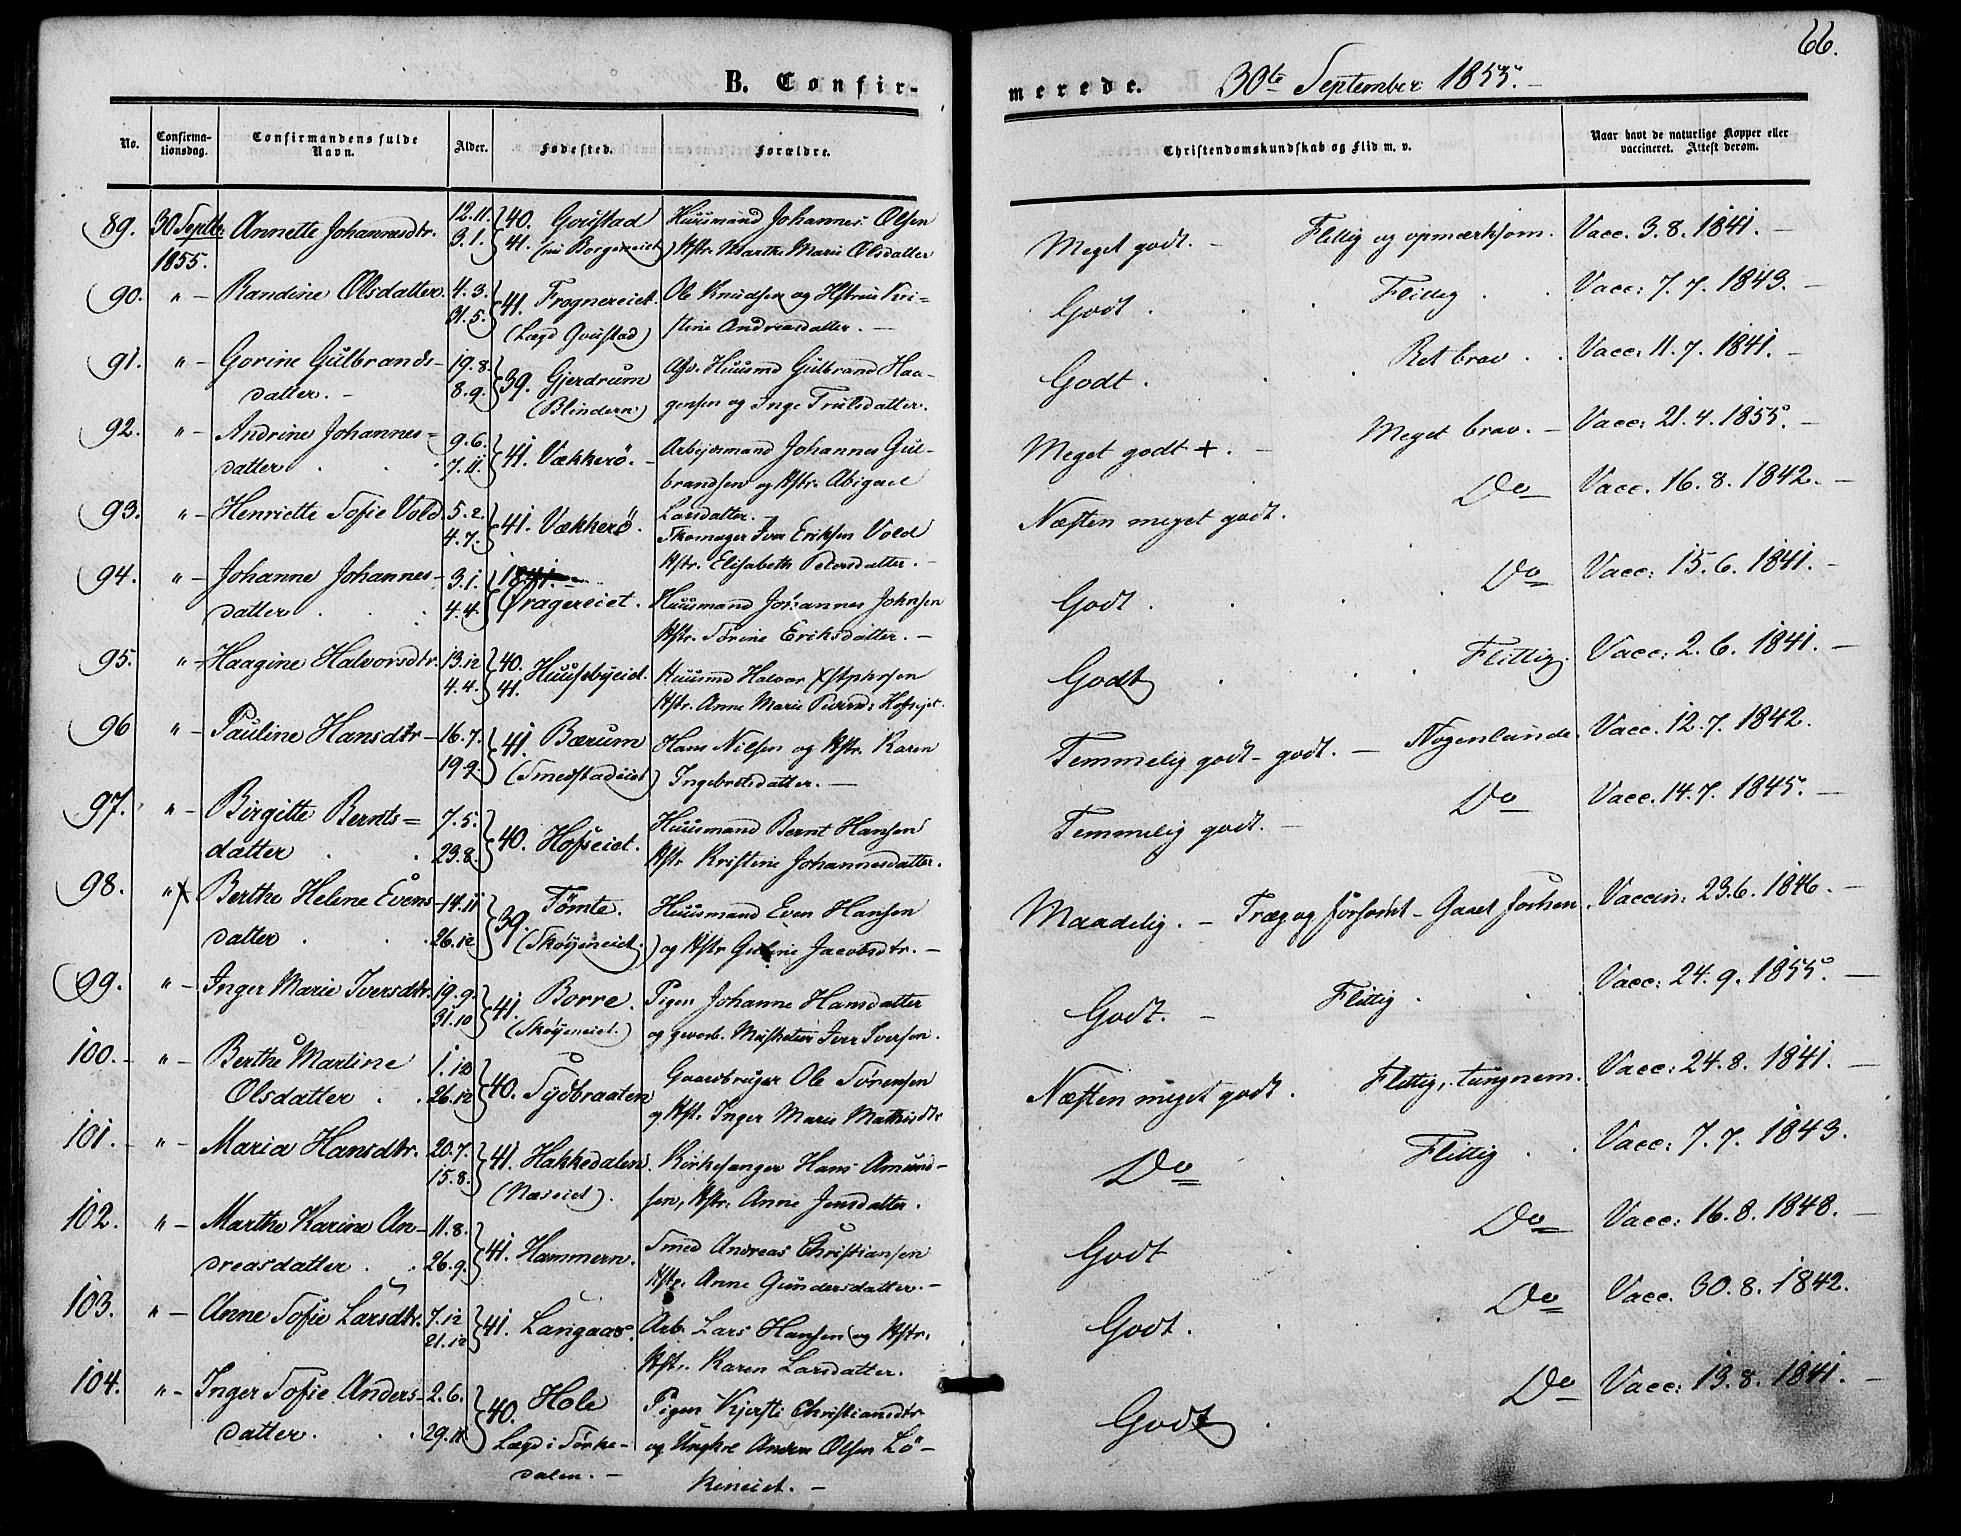 66.
B. Confir-
merede. 30te September 1855. -
No.
Confirma-
tionsdag.
Confirmandens fulde
Navn.
Alder.
Fødested.
Forældre.
Christendomskundskab og Flid m. v.
Naar havt de naturlige Kopper eller
vaccineret. Attest derom.
89. 30 Septbr. Annette Johannesdtr. 12.11. 40. Goustad Huusmand Johannes Olsen
1855. 3.1. 41. (nu Borgeneiet) Hstr. Marthe Marie Olsdatter
Meget godt. - Flittig og opmærksom. Vacc. 3.8.1841. -
90. " - Randine Olsdatter. 4.3. 41. Frognereiet. Ole Knudsen og Hstrue Kri-
31.5. (Lægd Goustad) stine Andreasdatter. -
Godt . Flittig . . Vacc: 7.7.1843. -
91. " - Gorine Gulbrands- 19.8. 39. Gjerdrum Afd. Huusmd Gulbrand Haa-
datter. - 8.9. (Blindern) gensen og Inge Trulsdatter.
Godt . . . Ret brav . . Vacc: 11.7.1841. -
92. " - Andrine Johannes= 9.6. 41. Vækkerö. - Arbejdsmand Johannes Gul-
datter . . . 7.11. brandsen og Hstr. Abigael
Larsdatter. -
Meget godt +. - Meget brav. - Vacc: 21.4.1855. -
93. " - Henriette Sofie Vold. 5.2. 41. Vækkerö. Skomager Iver Eriksen Vold
4.7. Hstr. Elisabeth Petersdatter. -
Næsten meget godt. Do Vacc. 16.8.1842. -
94. " - Johanne Johannes- 3.1. 1841.
datter . . . 4.4. Øragereiet. Huusmand Johannes Johnsen
Hstr. Sörine Eriksdatter. -
Godt . . . . Do Vacc: 15.6.1841. -
95. " - Haagine Halvorsdtr. 13.12 40. Huusebyeiet. Huusmd Halvor
4.4. 41. Hstr. Anne Marie
Godt . . . Flittig. Vacc: 2.6.1841. -
96 " - Pauline Hansdtr - 16.7. 41. Bærum Hans Nilsen og Hstr. Karen
19.9. (Smedstadeiet) Ingebretsdatter. -
Temmelig godt - godt. - Nogenlunde. Vacc. 12.7.1842.
97. " - Birgitte Bernts= 7.5. 40. Hofseiet. Huusmand Bernt Hansen
datter . . 23.8. Hstr Kristine Johannesdatter.
Temmelig godt. - Do Vacc. 14.7.1845. -
98. " Berthe Helene Evens- 14.11 39. Tömte. Huusmand Even Hansen
datter . . . 26.12 (Sköyeneiet.) og Hstr Guline Jacobsdtr. -
Maadelig. - Træg og forsömt - Vaccin: 23.6.1846. -
99. " - Inger Marie Iversdtr. 19.9. 41. Borre. Pigen Johanne Hansdatter
31.10 (Sköyeneiet.) og gevorb. Musketeer Iver Iversen.
Godt. - Flittig . . . Vacc: 24.9.1855. -
100. - " - Berthe Martine 1.12 40. Sydbraaten Gaardbruger Ole Sörensen
Olsdatter . . 26.12 og Hstr. Inger Marie Mathisdtr
Næsten meget godt. Flittig, tungnem. Vacc: 24.8.1841. -
101. - " - Maria Hansdtr. 20.7. 41. Hakkedalen. Kirkesanger Hans Amund-
15.8. (Næseiet). sen, Hstr. Anne Jensdatter.
Do . Flittig . . Vacc: 7.7.1843.
102. " - Marthe Karine An- 11.8. 41. Hammern. Smed Andreas Christiansen
dreasdatter . . 26.9. Hstr. Anne Gundersdatter. -
Godt . Do Vacc: 16.8.1848. -
103. " - Anne Sofie Larsdtr. 7.12 41. Langaas. Arb. Lars Hansen og Hstr.
21.12 Hstr. Karen Larsdatter.
Godt. . . Do Vacc. 30.8.1842.
104. " - Inger Sofie Anders- 2.6. 40. Hole Pigen Kjersti Christiansdtr
datter. . . 29.11 Lægd i Sörke- og Ungkrl Anders Olsen Lö-
dalen. - keneiet. -
Godt . Do Vacc: 13.8.1841. -